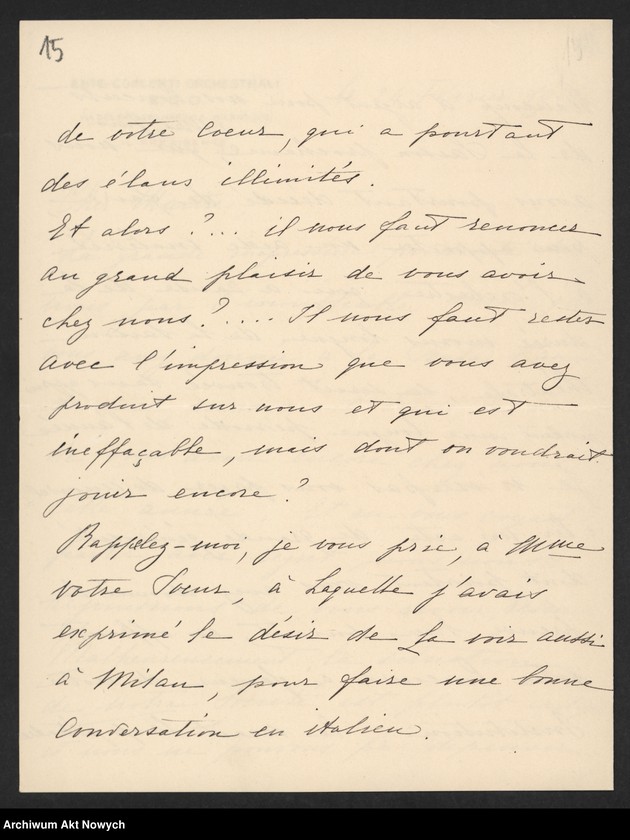 15
de votre Coeur, qui a pourtant
des élans illimités.
Et alors ?... il nous faut renoncer
au grand plaisir de vous avoir
chez nous ?.... Il nous faut rester
avec l'impression que vous avez
produit sur nous et qui est
ineffaçable, mais dont on voudrait
jouir encore ?
Rappelez-moi, je vous prie, à Mme
votre Soeur, à laquelle j'avais
exprimé le désir de la voir aussi
à Milan, pour faire une bonne
Conversation en italien.
Archiwum Akt Nowych